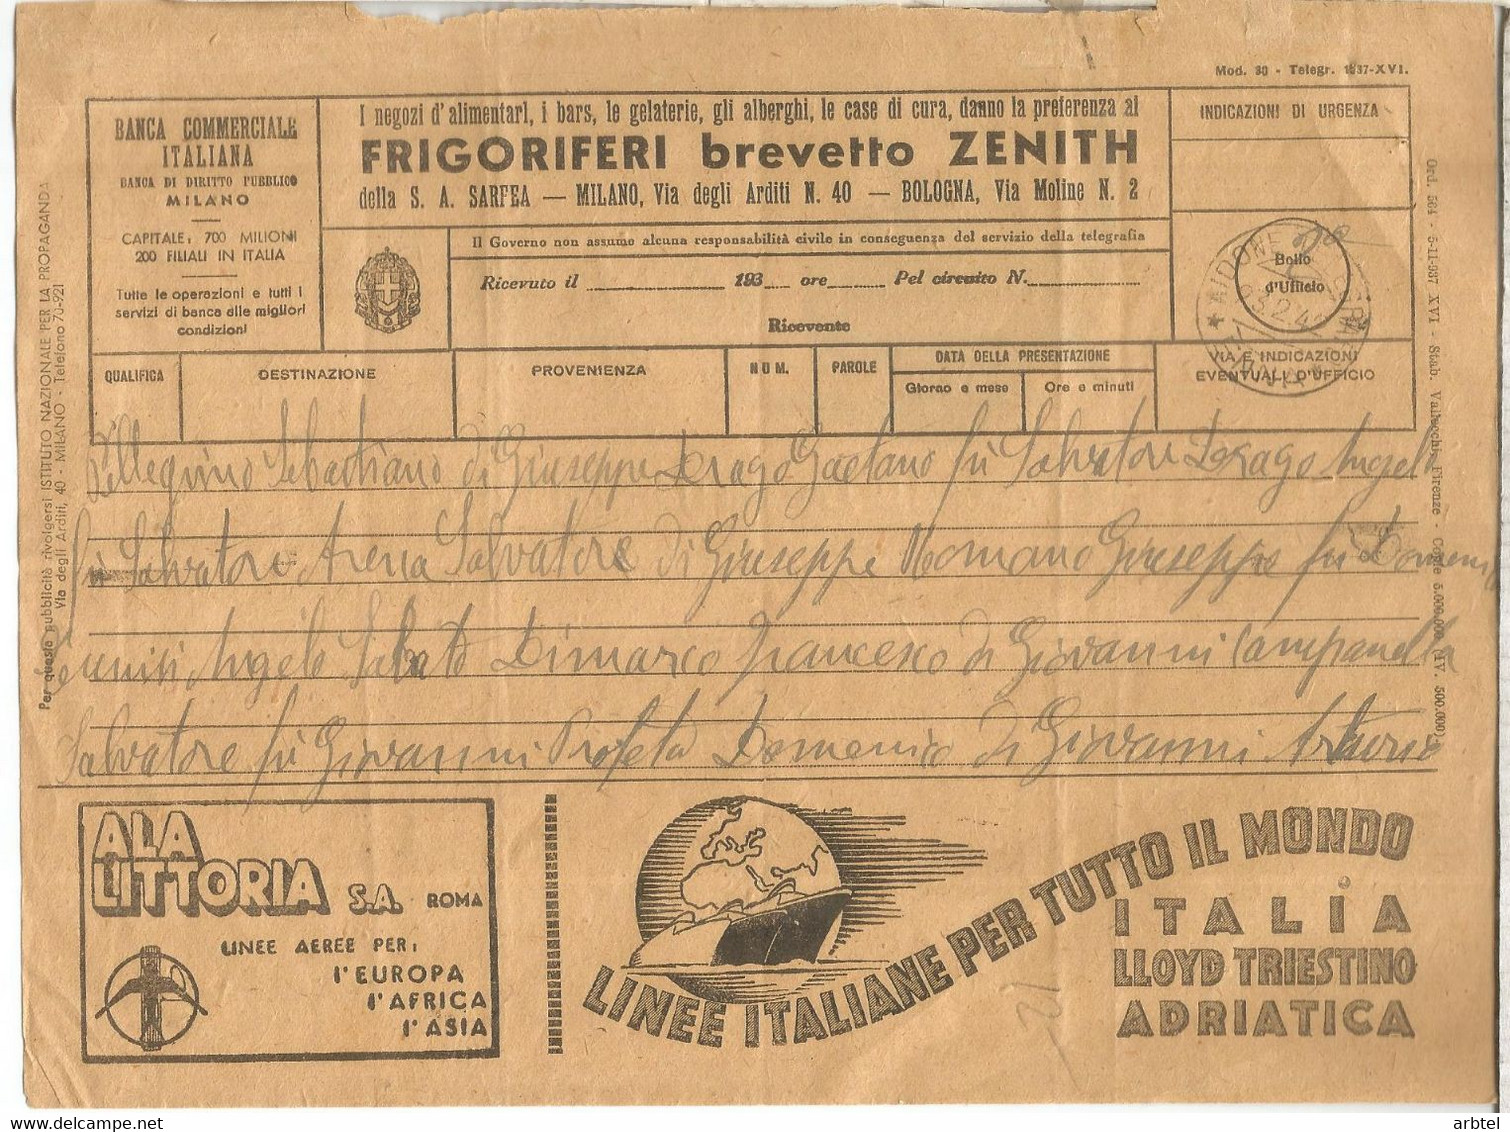 Mod. 30 - Telegr. 1937-XVI.
BANCA COMMERCIALE
ITALIANA
BANCA DI DIRITTO PUBBLICO
MILANO
CAPITALE: 700 MILIONI
200 FILIALI IN ITALIA
Tutte le operazioni e tutti i
servizi di banca alle migliori
condizioni
I negozi d'alimentari, i bars, le gelaterie, gli alberghi, le case di cura, danno la preferenza ai
FRIGORIFERI brevetto ZENITH
della S. A. SARFEA — MILANO, Via degli Arditi N. 40 — BOLOGNA, Via Moline N. 2
Il Governo non assume alcuna responsabilità civile in conseguenza del servizio della telegrafia
Ricevuto il 193 ore Pel circuito N.
Ricevente
INDICAZIONI DI URGENZA
Bollo
d'Ufficio
AIDONE
QUALIFICA
DESTINAZIONE
PROVENIENZA
NUM.
PAROLE
DATA DELLA PRESENTAZIONE
Giorno e mese
Ore e minuti
VIA E INDICAZIONI
EVENTUALI D'UFFICIO
Pellegrino Sebastiano di Giuseppe Drago Gaetano fu Salvatore Drago Angelo
fu Salvatore Arena Salvatore di Giuseppe Romano Giuseppe fu Domenico
Angelo Salvato Dimarco Francesco di Giovanni Campanella
Salvatore fu Giovanni Profeta Domenico di Giovanni
Per questa pubblicità rivolgersi ISTITUTO NAZIONALE PER LA PROPAGANDA
Via degli Arditi, 40 - MILANO - Telefono 70-921
Ord. 564 - 5-11-937 XVI - Stab. Vallecchi, Firenze - Copie 5.000.000 (IV. 500.000)
ALA
LITTORIA S.A. ROMA
LINEE AEREE PER:
l'EUROPA
l'AFRICA
l'ASIA
LINEE ITALIANE PER TUTTO IL MONDO
ITALIA
LLOYD TRIESTINO
ADRIATICA
arbtel